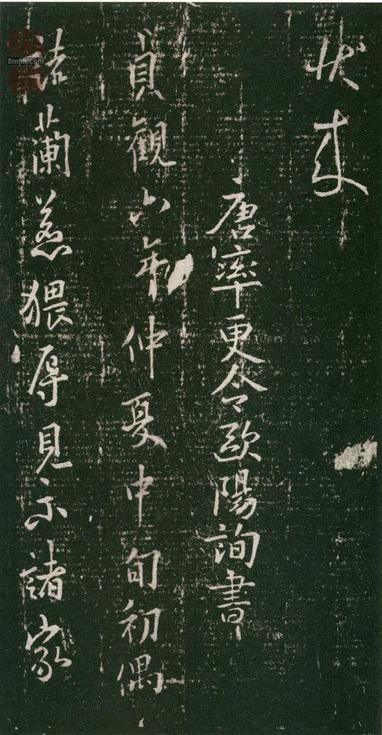 唐率更令歐陽詢書
貞觀六年仲夏中旬初偶
詰蘭惹猥辱見示諸家